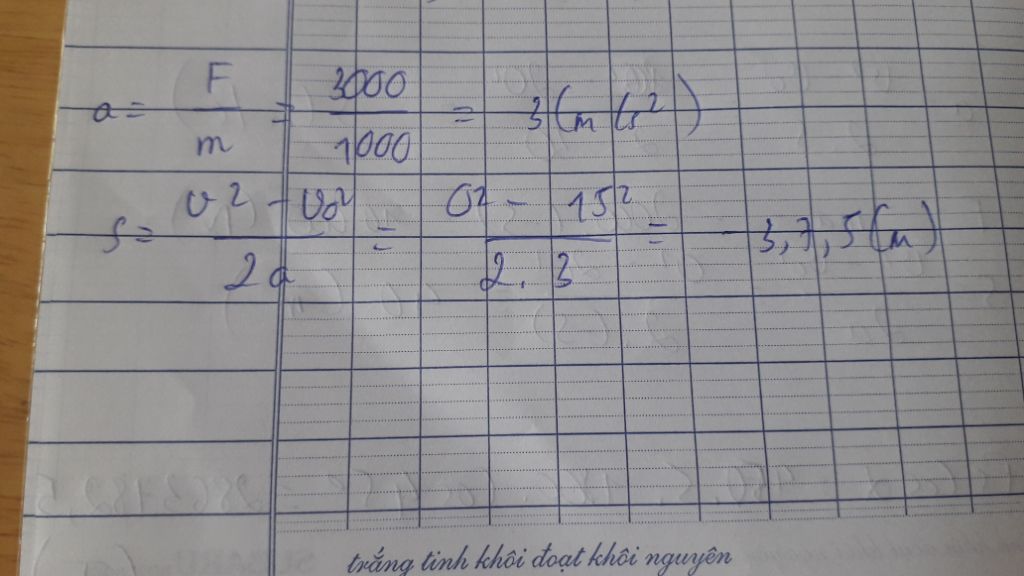 a = F/m = 3000/1000 = 3 (m/s²)
s = v² - v₀²/2a = 0² - 15²/2.3 = - 3,7,5 (m)
trắng tinh khôi đoạt khôi nguyên